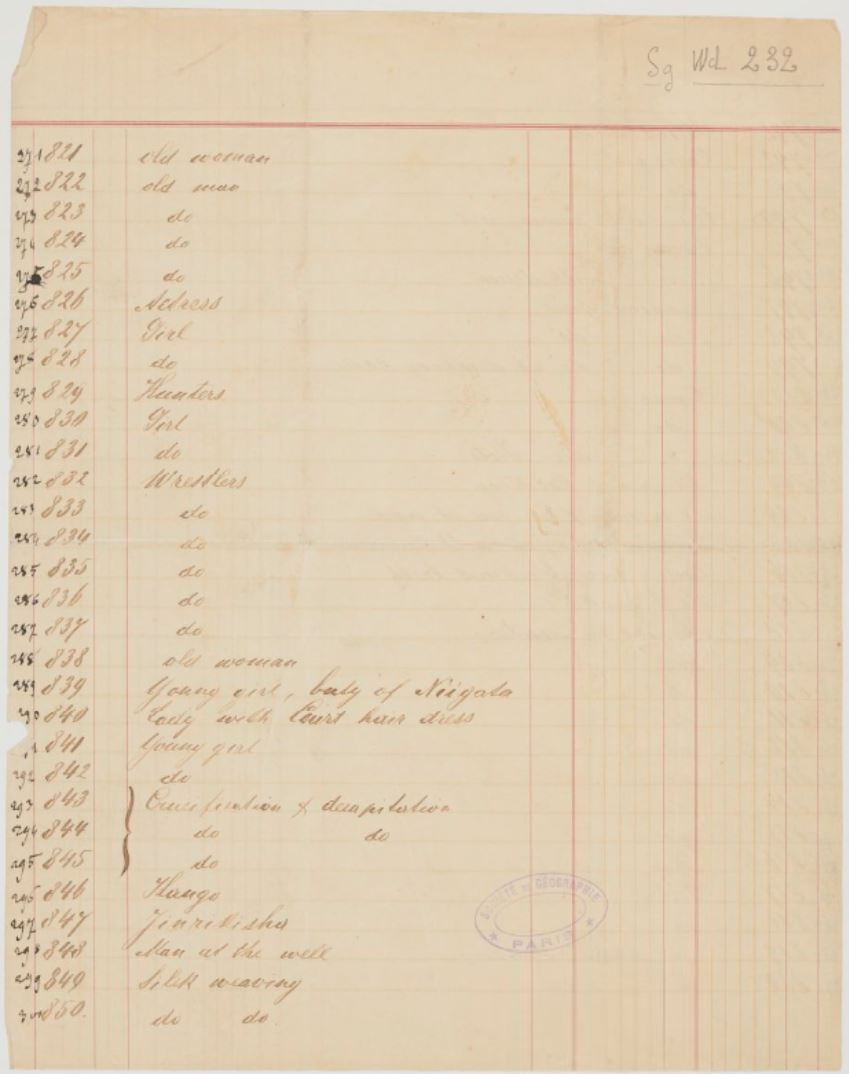 Sg Wd 232
271 821 old woman
272 822 old man
273 823 do
274 824 do
275 825 do
276 826 Actress
277 827 Girl
278 828 do
279 829 Hunters
280 830 Girl
281 831 do
282 832 Wrestlers
283 833 do
284 834 do
285 835 do
286 836 do
287 837 do
288 838 old woman
289 839 Young girl, buty of Niigata
290 840 Lady with Court hair dress
1 841 Young girl
292 842 do
293 843 Crucification & decapitation
294 844 do do
295 845 do
296 846 Kango
297 847 Jinrikisha
298 848 Man at the well
299 849 Silk weaving
300 850. do do.
SOCIÉTÉ DE GÉOGRAPHIE
★ PARIS ★